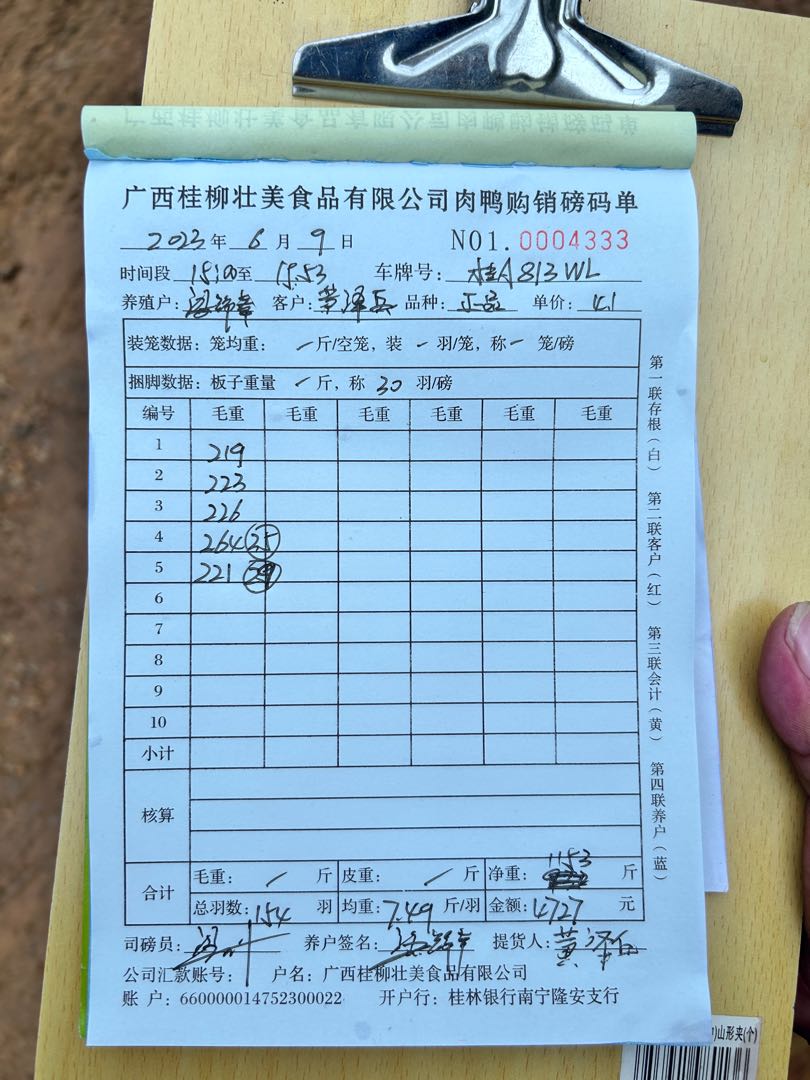 广西桂柳壮美食品有限公司肉鸭购销磅码单
2023年 6 月 9 日 NO1. 0004333
时间段 15:00至 15:53 车牌号: 桂A813WL
养殖户: 客户: 黄泽兵 品种: 正品 单价: 4.1
装笼数据: 笼均重: 一斤/空笼, 装 一 羽/笼, 称一 笼/磅
捆脚数据: 板子重量 一 斤, 称 30 羽/磅
编号 毛重 毛重 毛重 毛重 毛重 毛重
1 219
2 223
3 226
4 264 35
5 221
6
7
8
9
10
小计
核算
合计 毛重: 一 斤 皮重: 一 斤 净重: 1153 斤
总羽数: 154 羽 均重: 7.49 斤/羽 金额: 4727 元
司磅员: 养户签名: 提货人: 黄泽
公司汇款账号: 户名: 广西桂柳壮美食品有限公司
账 户: 660000014752300022 开户行: 桂林银行南宁隆安支行
第一联存根(白) 第二联客户(红) 第三联会计(黄) 第四联养户(蓝)
山形夹(个)